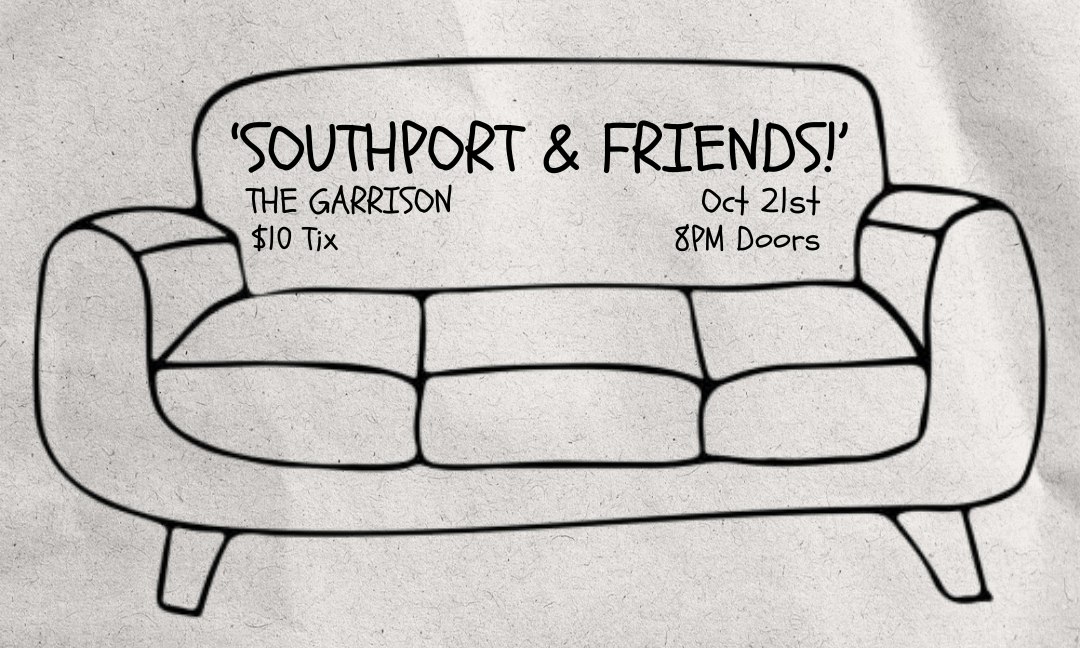 ‘SOUTHPORT & FRIENDS!’
THE GARRISON Oct 21st
$10 Tix 8PM Doors